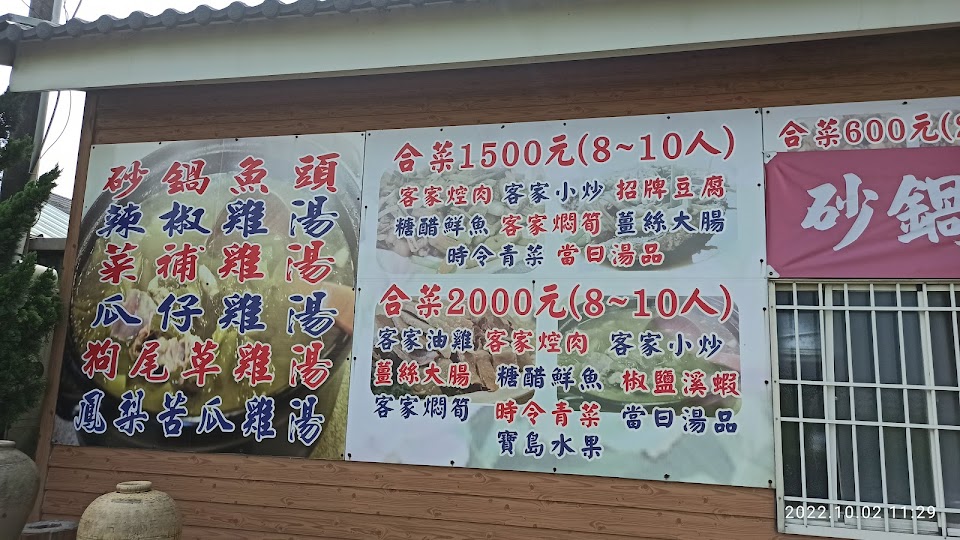 砂鍋魚頭
辣椒雞湯
菜補雞湯
瓜仔雞湯
狗尾草雞湯
鳳梨苦瓜雞湯
合菜1500元(8~10人)
客家焢肉 客家小炒 招牌豆腐
糖醋鮮魚 客家燜筍 薑絲大腸
時令青菜 當日湯品
合菜2000元(8~10人)
客家油雞 客家焢肉 客家小炒
薑絲大腸 糖醋鮮魚 椒鹽溪蝦
客家燜筍 時令青菜 當日湯品
寶島水果
合菜600元(
砂鍋
2022.10.02 11:29